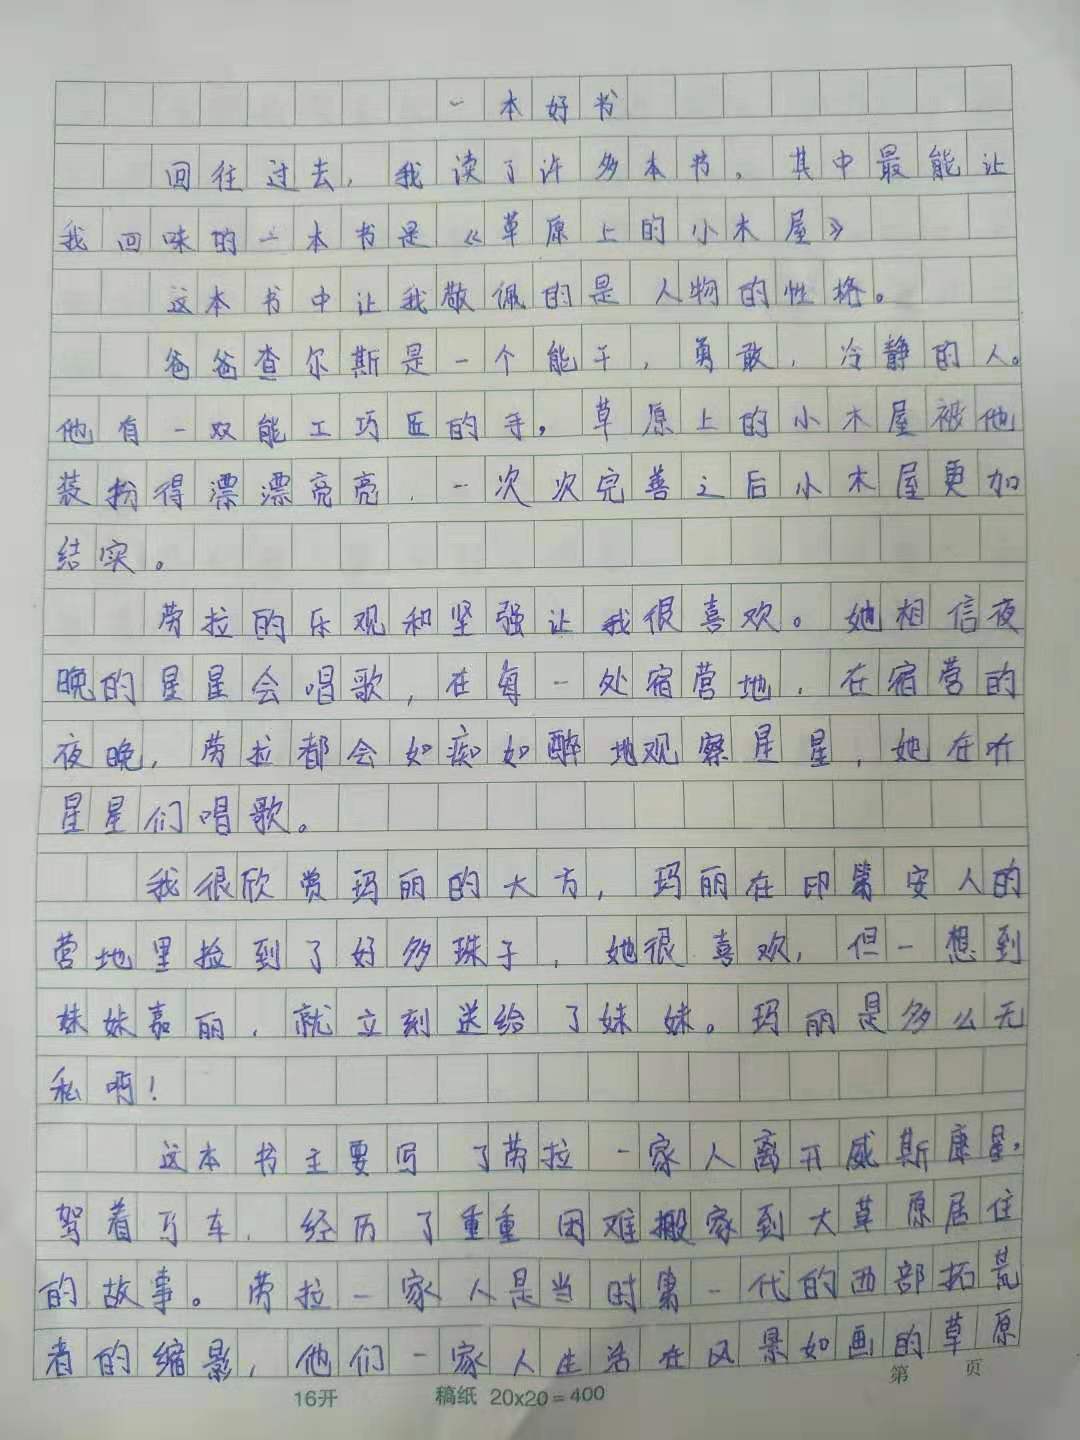 一本好书
回往过去，我读了许多本书，其中最能让
我回味的一本书是《草原上的小木屋》
这本书中让我敬佩的是人物的性格。
爸爸查尔斯是一个能干，勇敢，冷静的人。
他有一双能工巧匠的手，草原上的小木屋被他
装扮得漂漂亮亮，一次次完善之后小木屋更加
结实。
劳拉的乐观和坚强让我很喜欢。她相信夜
晚的星星会唱歌，在每一处宿营地，在宿营的
夜晚，劳拉都会如痴如醉地观察星星，她在听
星星们唱歌。
我很欣赏玛丽的大方，玛丽在印第安人的
营地里捡到了好多珠子，她很喜欢，但一想到
妹妹嘉丽，就立刻送给了妹妹。玛丽是多么无
私啊！
这本书主要写了劳拉一家人离开威斯康星，
驾着马车，经历了重重困难搬家到大草原居住
的故事。劳拉一家人是当时第一代的西部拓荒
者的缩影，他们一家人生活在风景如画的草原
第 页
16开 稿纸 20x20=400